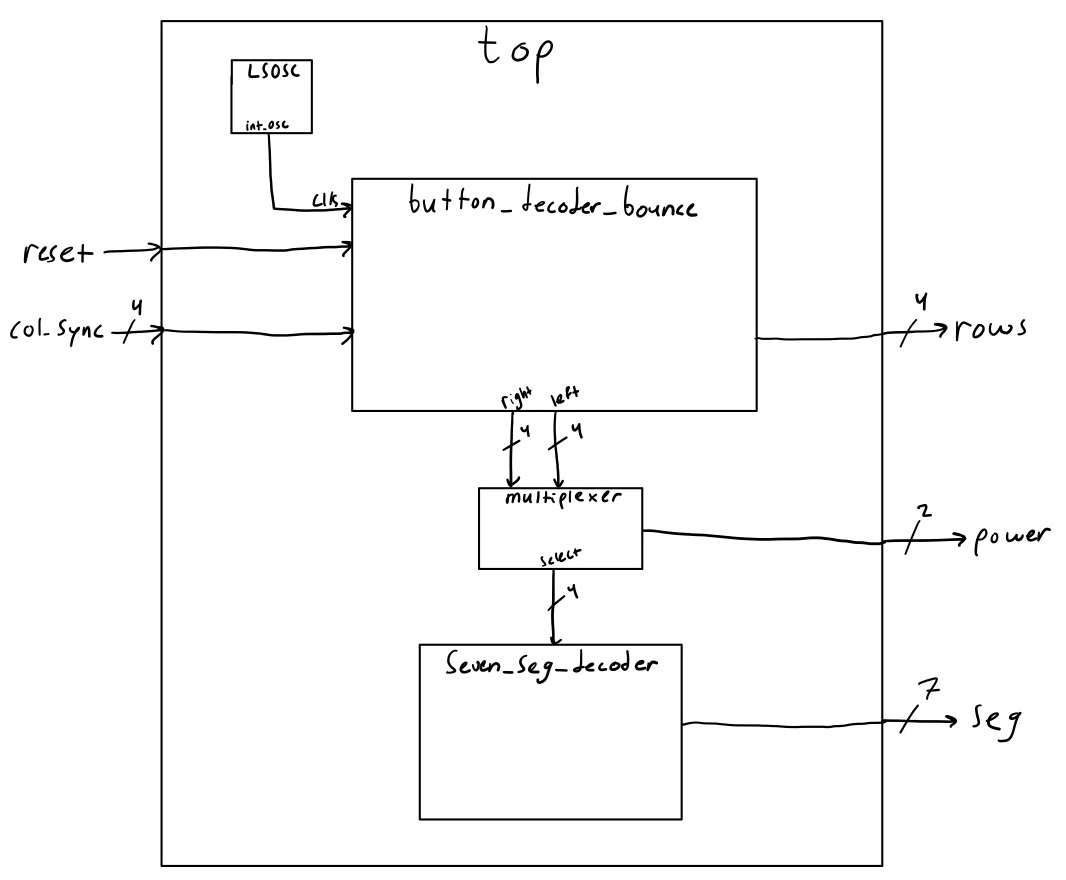 top
LSOSC
int_osc
clk
button_decoder_bounce
reset
4
col_sync
4
rows
right
left
4
4
multiplexer
select
2
power
4
Seven_seg_decoder
7
seg